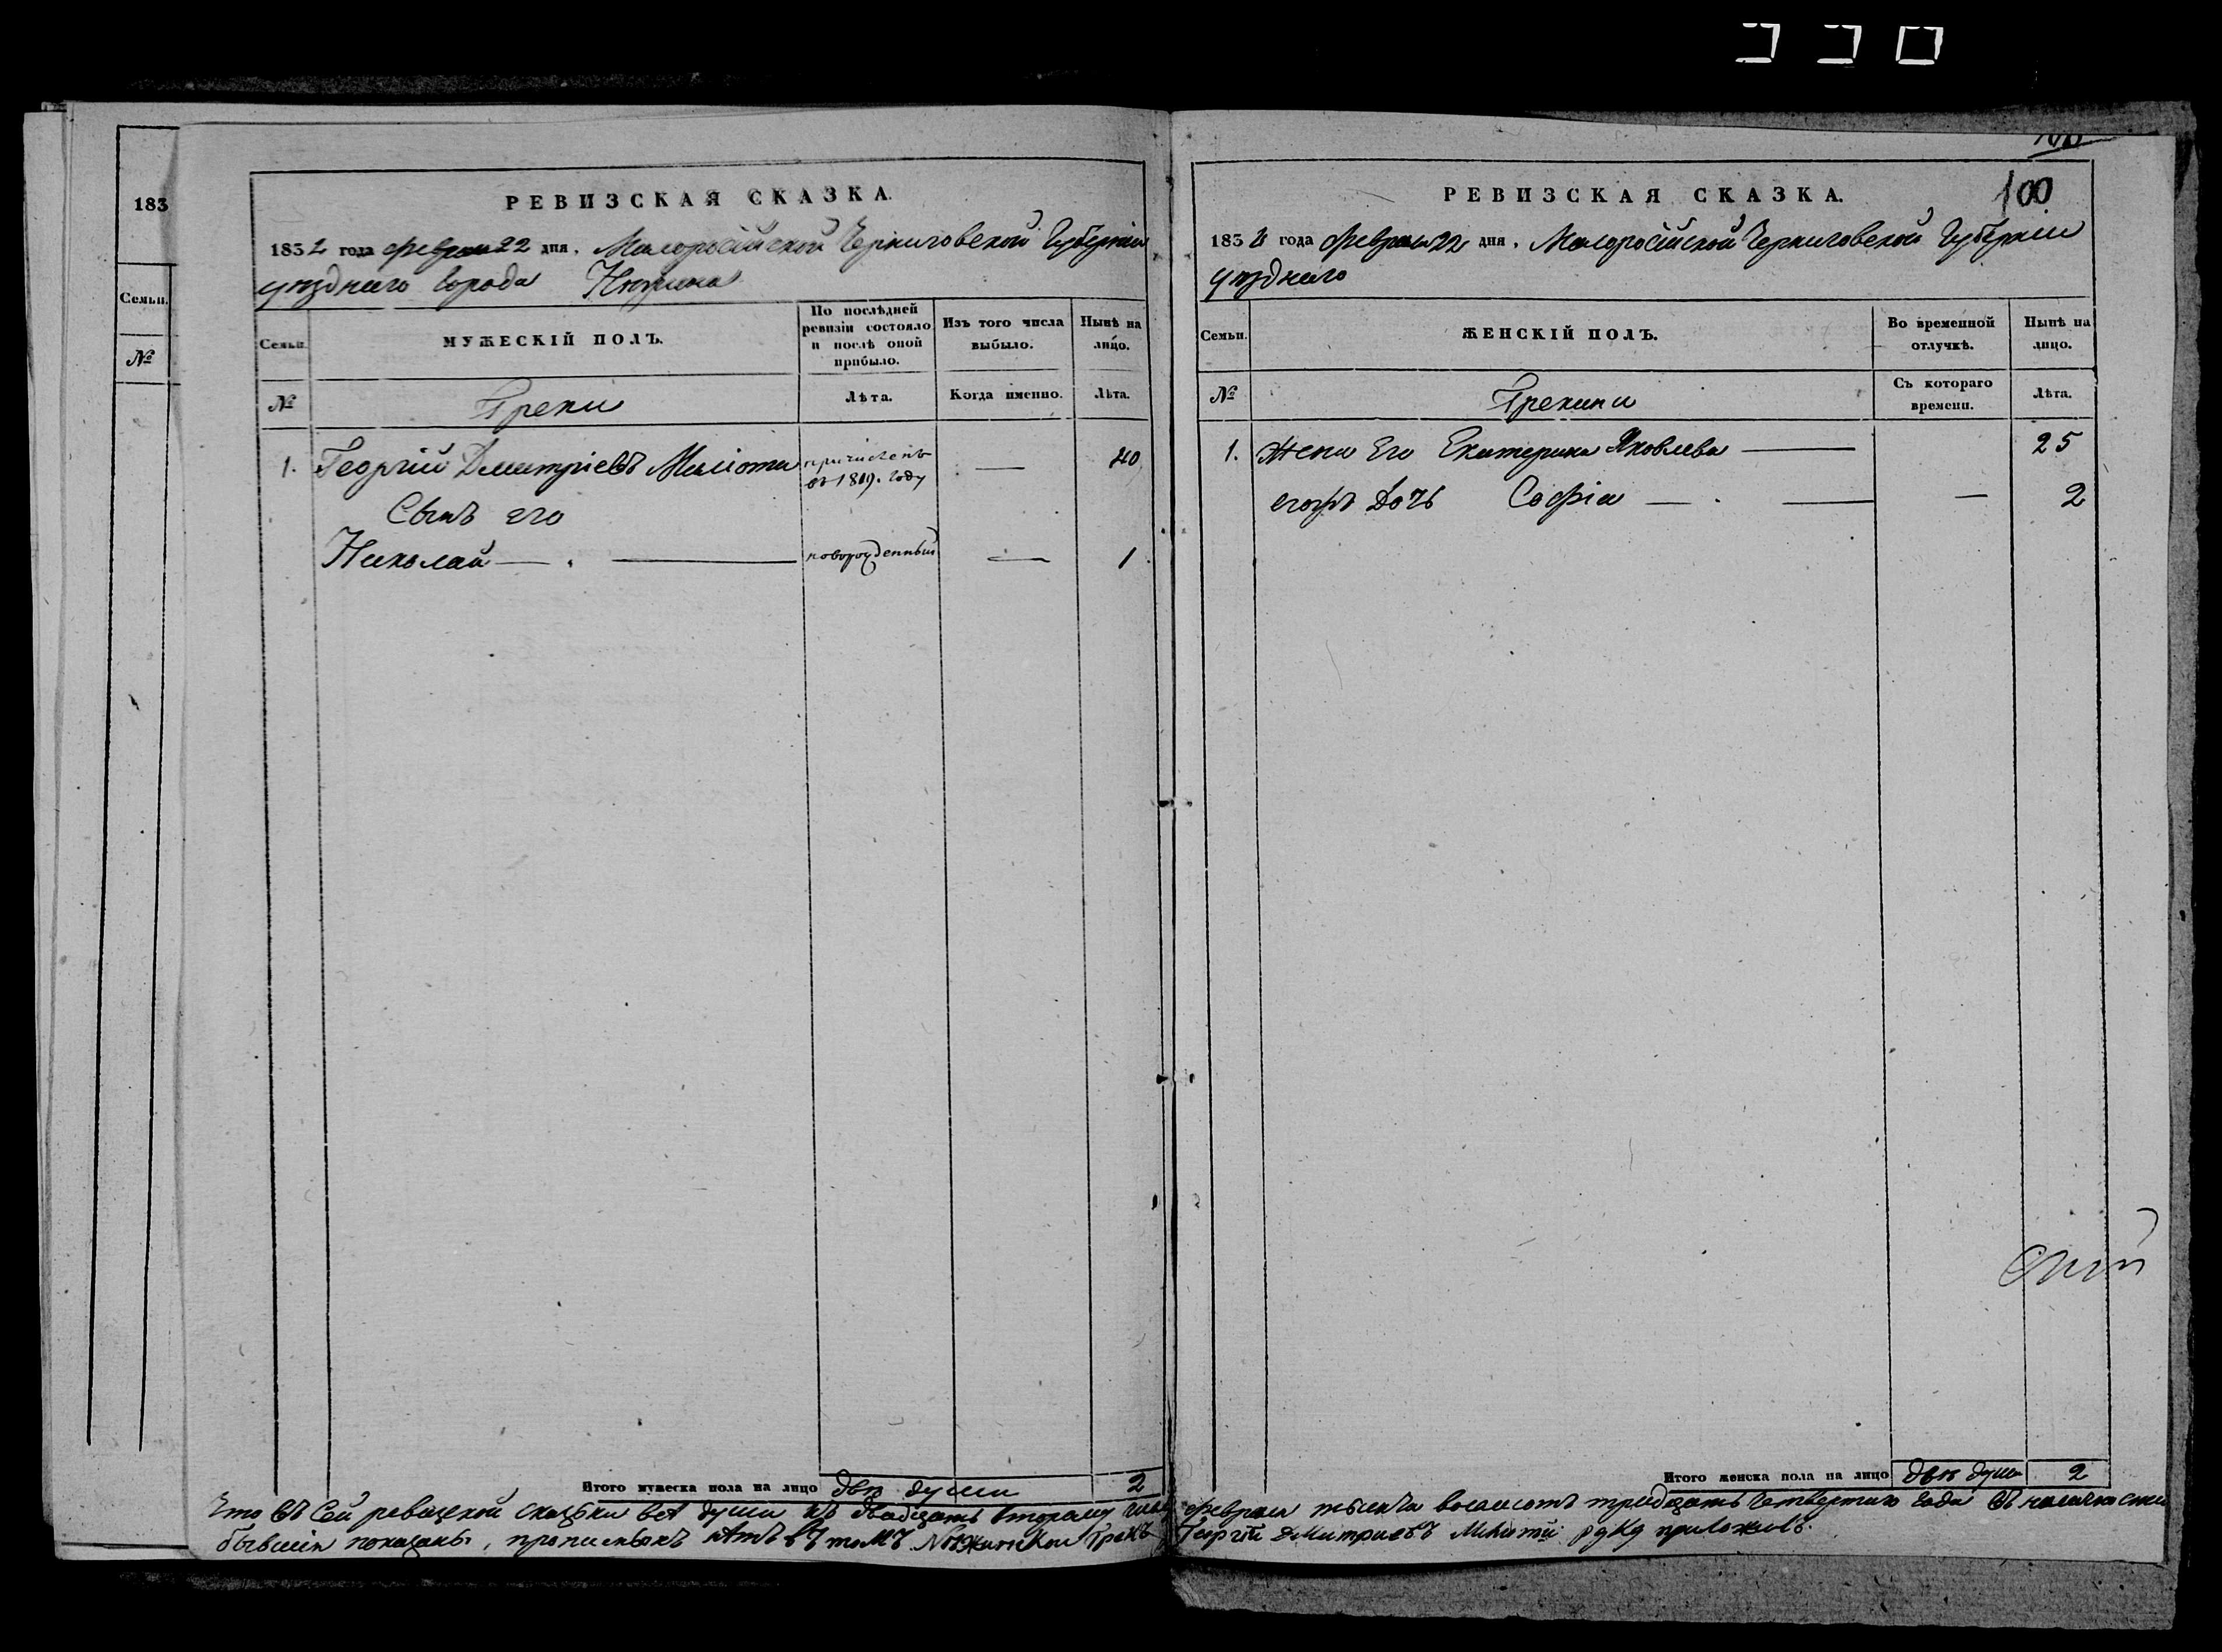 183
Семьи.
№
РЕВИЗСКАЯ СКАЗКА.
183 года февраля 22 дня, Малоросійской Черниговской Губерніи
уѣзднаго города Нѣжина
Семьи.
МУЖЕСКІЙ ПОЛЪ.
По послѣдней ревизіи состояло и послѣ оной прибыло.
Изъ того числа выбыло.
Нынѣ на лицо.
№
Греки
Лѣта.
Когда именно.
Лѣта.
1. Георгій Дмитріевъ причисленъ въ 1819. году — 40
Сынъ его
Николай — новорожденный — 1
Итого мужеска пола на лицо двѣ души 2
100
РЕВИЗСКАЯ СКАЗКА.
183 года февраля 22 дня, Малоросійской Черниговской Губерніи
уѣзднаго
Семьи.
ЖЕНСКІЙ ПОЛЪ.
Во временной отлучкѣ.
Нынѣ на лицо.
№
Грекини
Съ котораго времени.
Лѣта.
1. Жена Его Екатерина Яковлева — 25
его жъ Дочь Софіа — — 2
Итого женска пола на лицо двѣ души 2
Что въ Сей ревизской сказки всѣ души къ двадцать второму числу февраля тысяча восемсотъ тридцать четвертого года въ наличности
бывшія показаны, прописныхъ нѣтъ въ томъ Нѣжинскои Грекъ Георгій Дмитриевъ руку приложилъ.